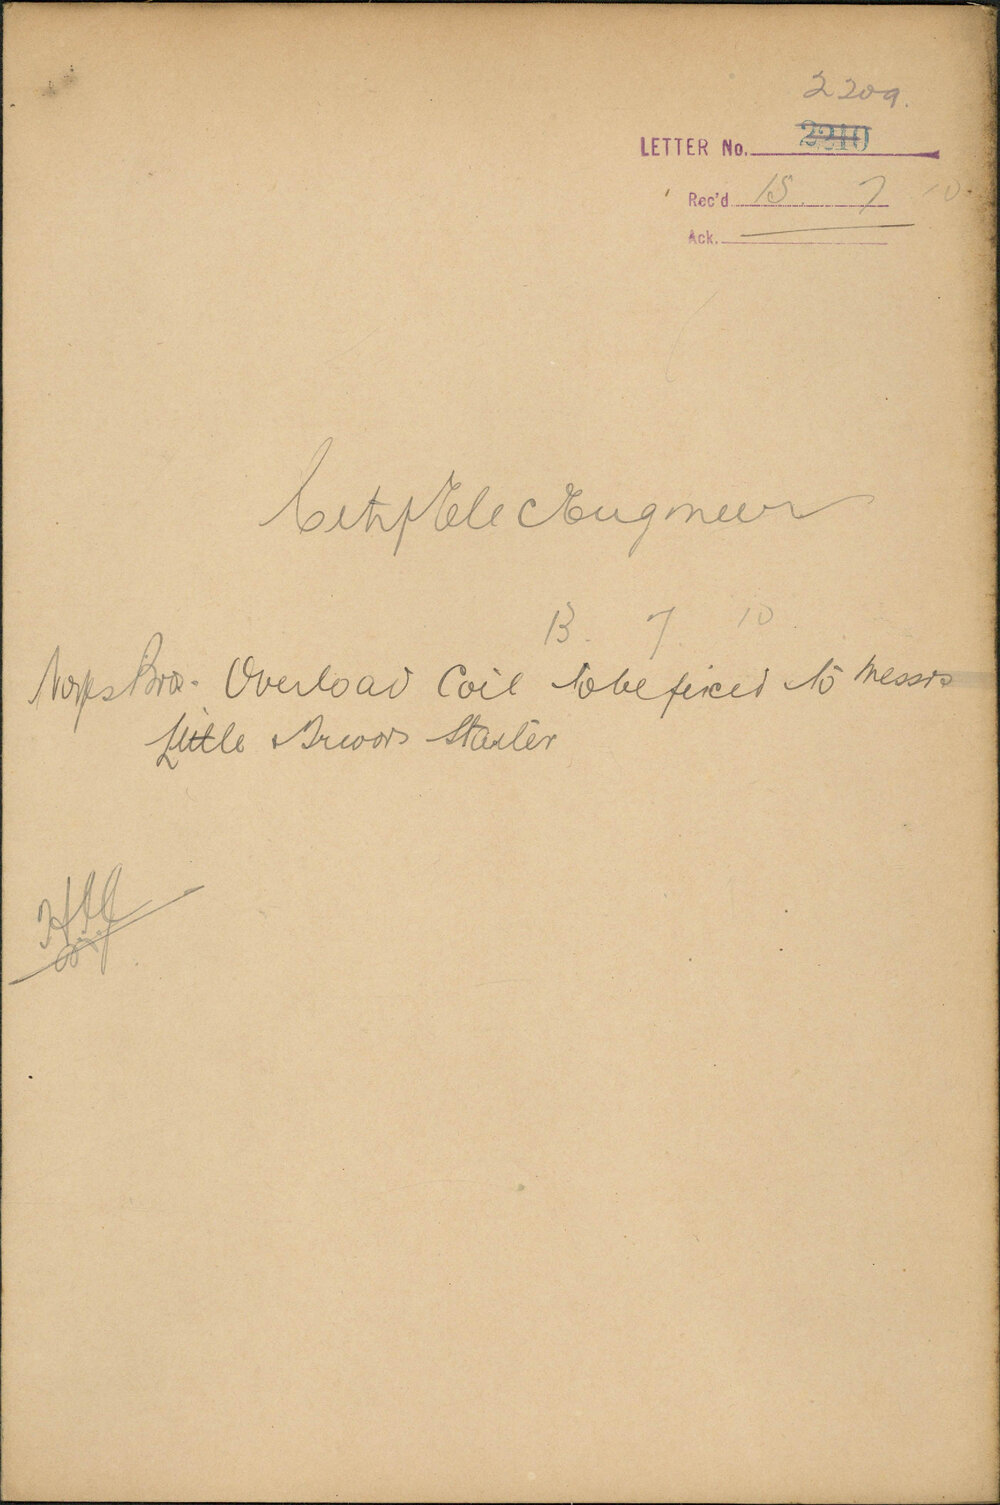 2209.
LETTER No. 2210
Rec'd 15. 7 10.
Ack.
City Elec Engineer
13. 7 10
Bros. Overload Coil to be fixed to Messrs
Little & Starter